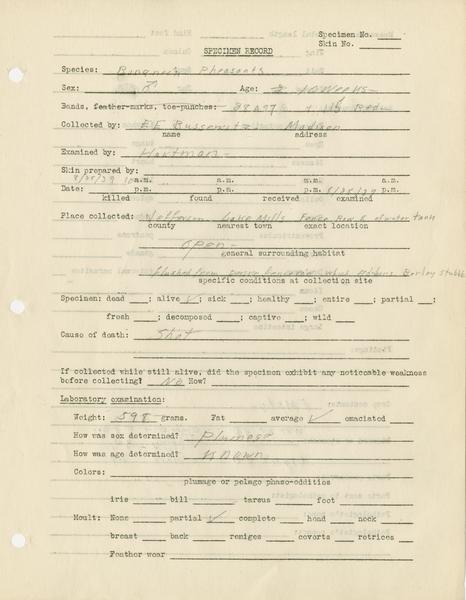 Specimen No.
Skin No.
SPECIMEN RECORD
Species: Ringneck Pheasants
Sex: ♂ Age: 10 Weeks
Bands, feather-marks, toe-punches:
Collected by: E E Bussewitz Madison
name address
Examined by: Hartman
Skin prepared by:
8/25/39 a.m. a.m. a.m. a.m.
Date: p.m. p.m. p.m. 8/25/39 p.m.
killed found received examined
Place collected: Jefferson Lake Mills Fence Row E of water tank
county nearest town exact location
open
general surrounding habitat
flushed from Barley stubble
specific conditions at collection site
Specimen: dead ; alive ✓; sick ; healthy ; entire ; partial ;
fresh ; decomposed ; captive ; wild
Cause of death: Shot
If collected while still alive, did the specimen exhibit any noticable weakness
before collecting? No How?
Laboratory examination:
Weight: 598 grams. Fat average ✓ emaciated
How was sex determined? Plumage
How was age determined? Known
Colors:
plumage or pelage phase-oddities
iris bill tarsus foot
Moult: None partial ✓ complete head neck
breast back remiges coverts retrices
Feather wear